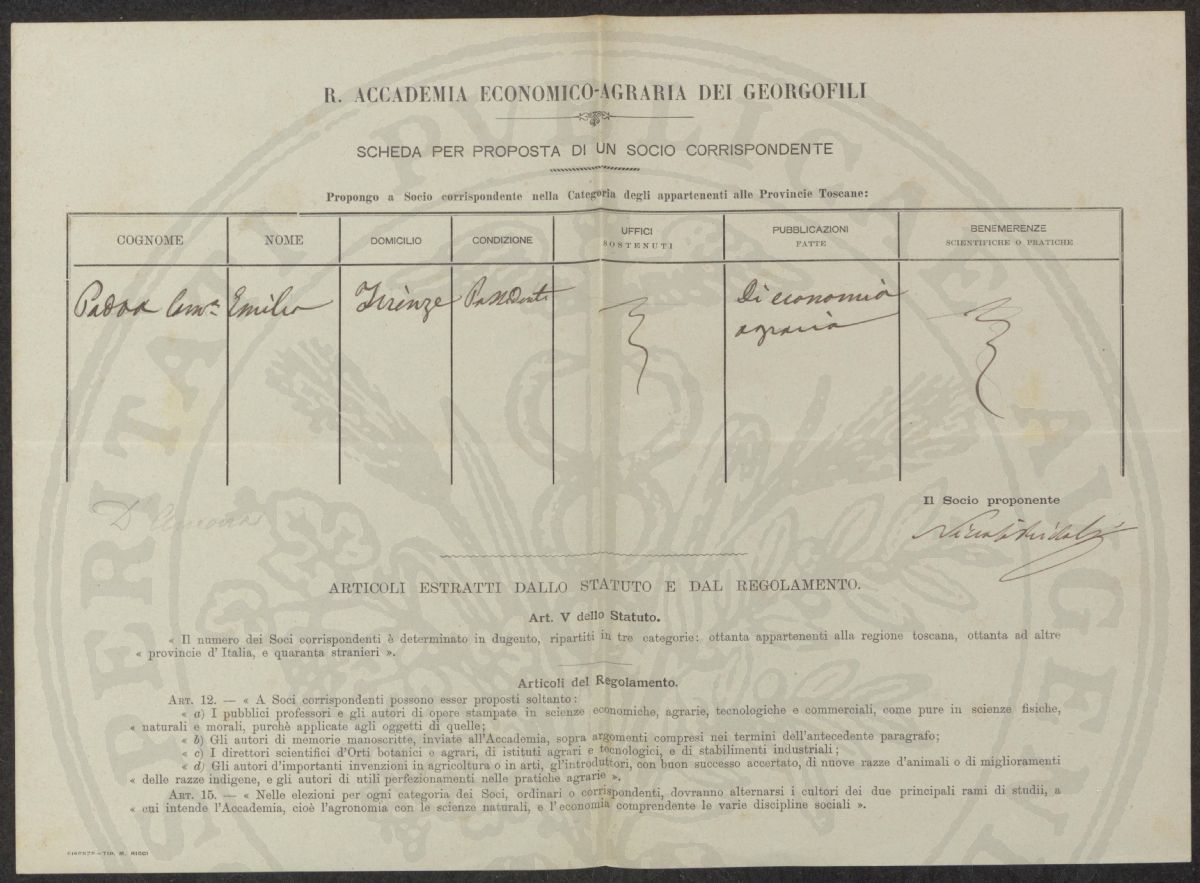 R. ACCADEMIA ECONOMICO-AGRARIA DEI GEORGOFILI
SCHEDA PER PROPOSTA DI UN SOCIO CORRISPONDENTE
Propongo a Socio corrispondente nella Categoria degli appartenenti alle Provincie Toscane:
COGNOME NOME DOMICILIO CONDIZIONE UFFICI SOSTENUTI PUBBLICAZIONI FATTE BENEMERENZE SCIENTIFICHE O PRATICHE
Padoa Emilio Firenze Possidente Di economia
agraria
Il Socio proponente
Niccolò Ridolfi
ARTICOLI ESTRATTI DALLO STATUTO E DAL REGOLAMENTO.
Art. V dello Statuto.
« Il numero dei Soci corrispondenti è determinato in dugento, ripartiti in tre categorie: ottanta appartenenti alla regione toscana, ottanta ad altre
« provincie d'Italia, e quaranta stranieri ».
Articoli del Regolamento.
ART. 12. — « A Soci corrispondenti possono esser proposti soltanto:
« a) I pubblici professori e gli autori di opere stampate in scienze economiche, agrarie, tecnologiche e commerciali, come pure in scienze fisiche,
« naturali e morali, purchè applicate agli oggetti di quelle;
« b) Gli autori di memorie manoscritte, inviate all'Accademia, sopra argomenti compresi nei termini dell'antecedente paragrafo;
« c) I direttori scientifici d'Orti botanici e agrari, di istituti agrari e tecnologici, e di stabilimenti industriali;
« d) Gli autori d'importanti invenzioni in agricoltura o in arti, gl'introduttori, con buon successo accertato, di nuove razze d'animali o di miglioramenti
« delle razze indigene, e gli autori di utili perfezionamenti nelle pratiche agrarie ».
ART. 15. — « Nelle elezioni per ogni categoria dei Soci, ordinari o corrispondenti, dovranno alternarsi i cultori dei due principali rami di studii, a
« cui intende l'Accademia, cioè l'agronomia con le scienze naturali, e l'economia comprendente le varie discipline sociali ».
FIRENZE - TIP. M. RICCI